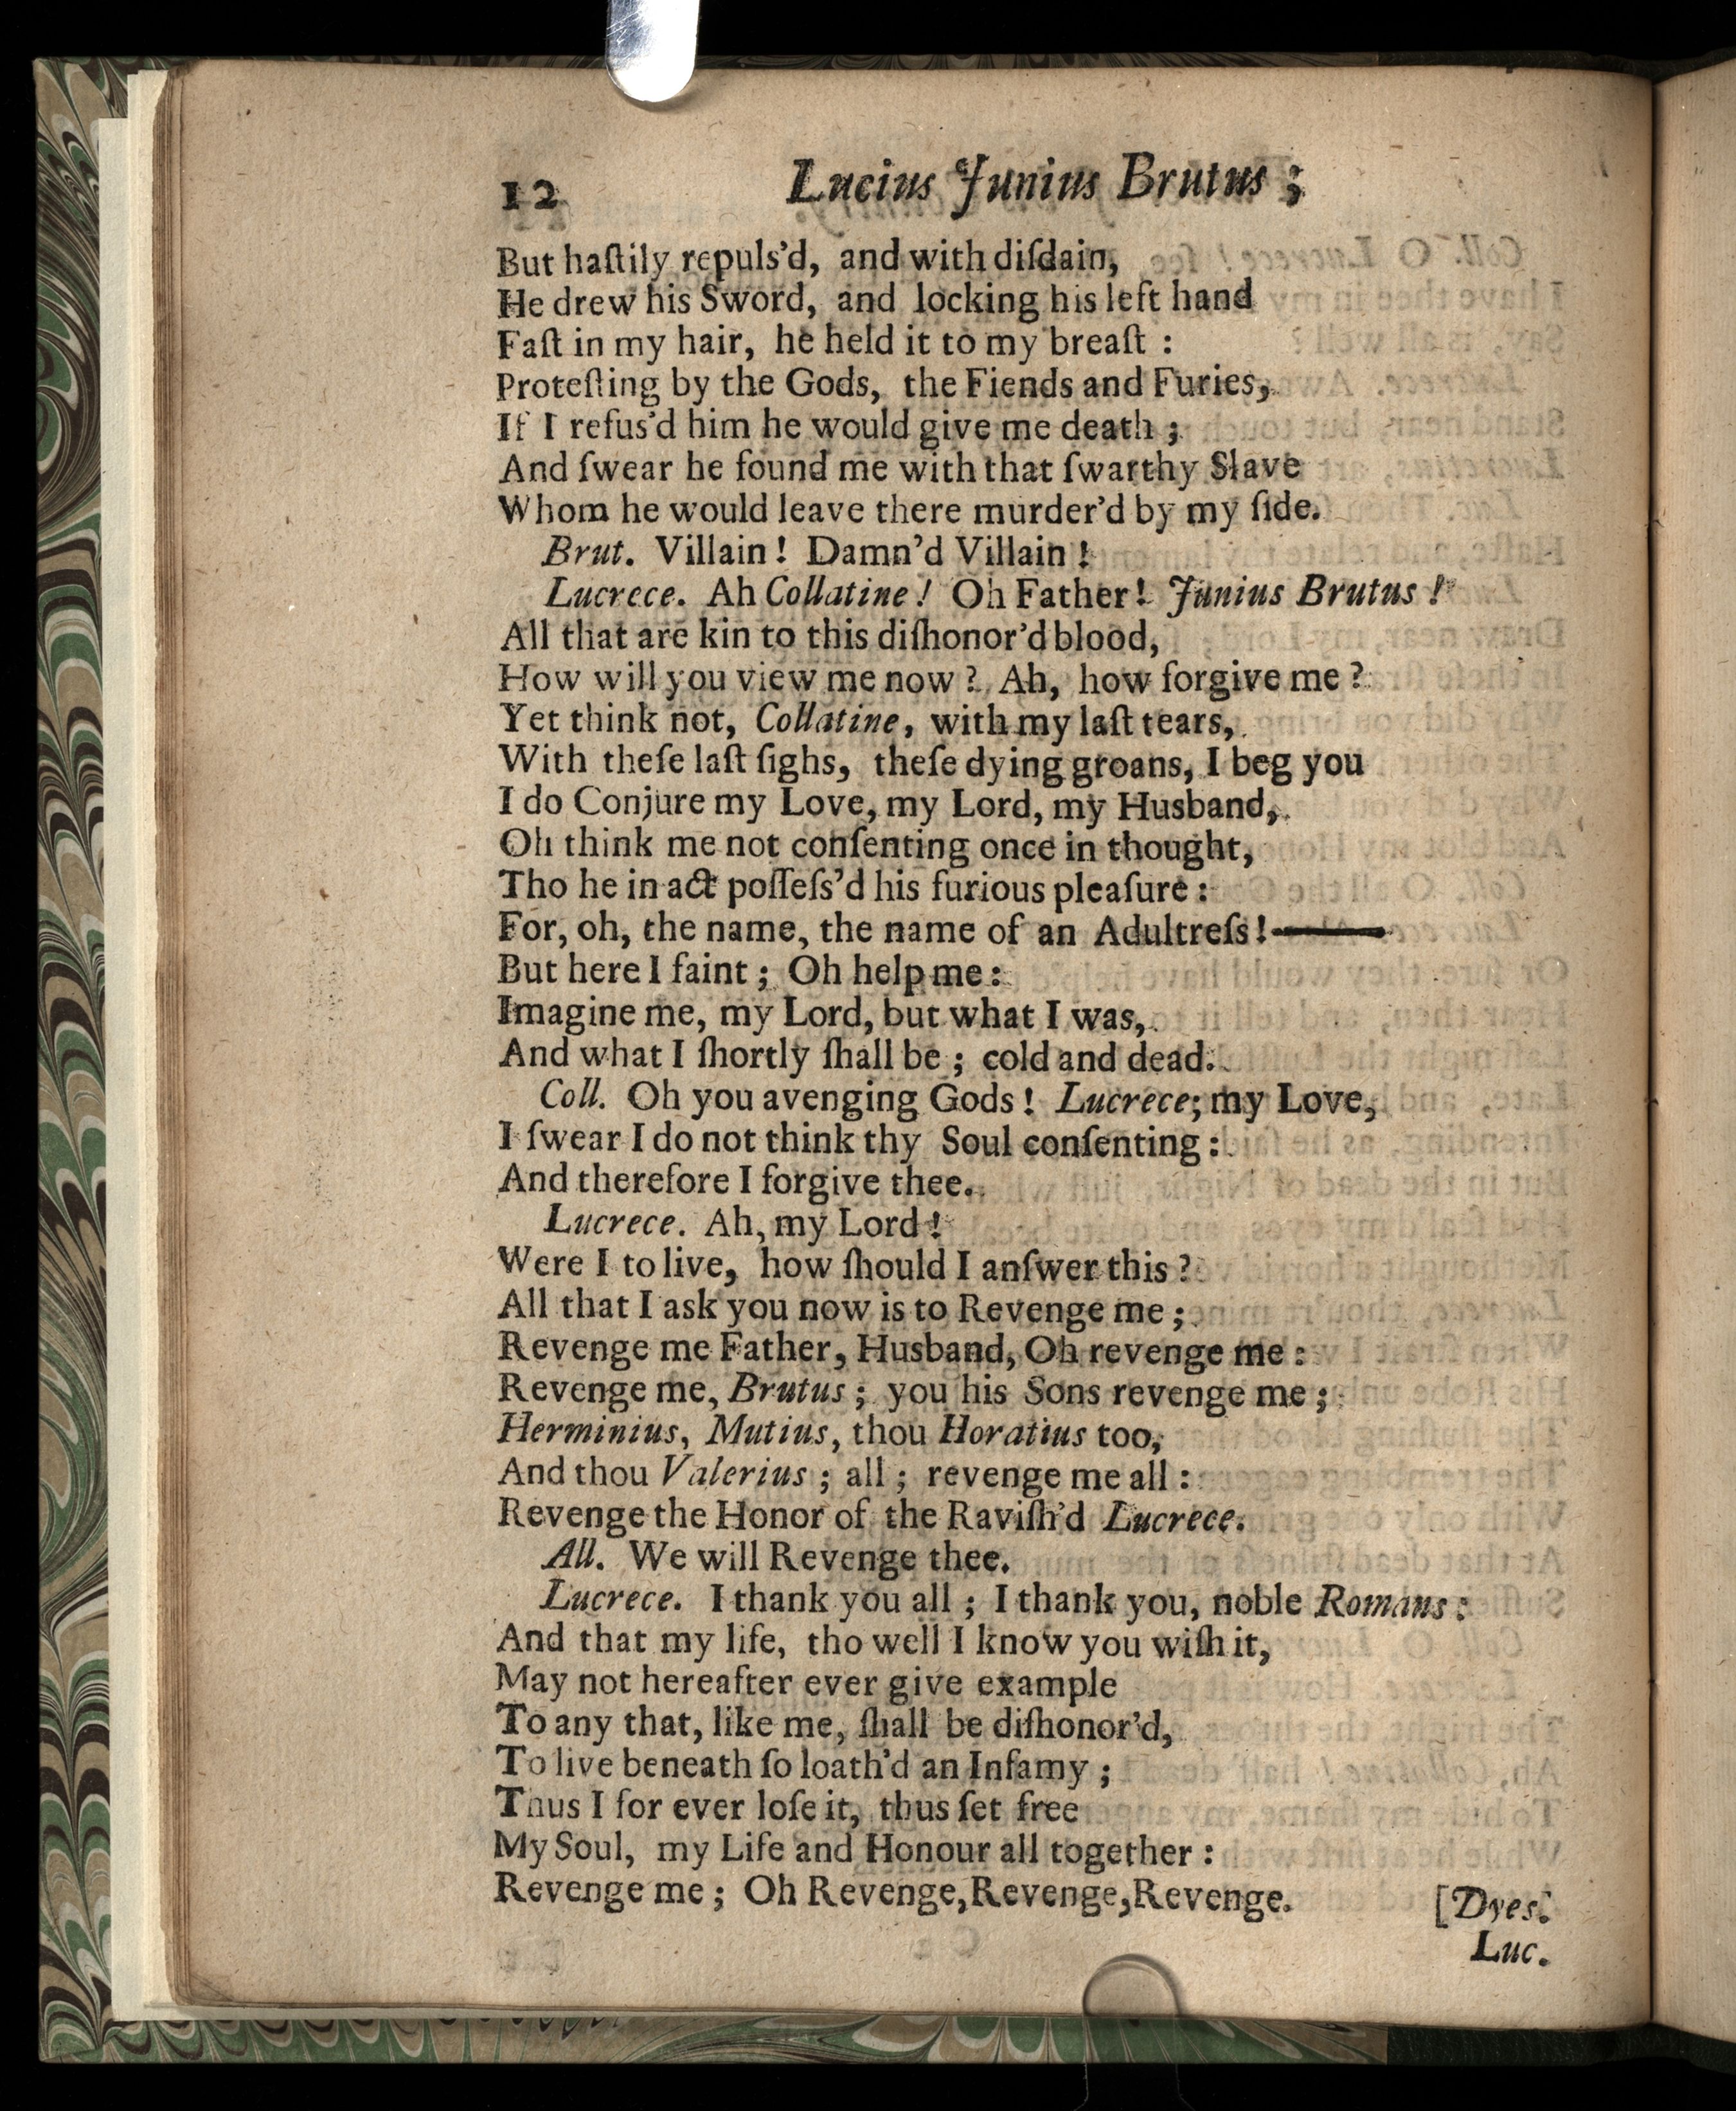 12 Lucius Junius Brutus ;
But haſtily repuls’d, and with diſdain,
He drew his Sword, and locking his left hand
Faſt in my hair, he held it to my breaſt :
Proteſting by the Gods, the Fiends and Furies,
If I refus’d him he would give me death ;
And ſwear he found me with that ſwarthy Slave
Whom he would leave there murder’d by my ſide.
Brut. Villain ! Damn’d Villain !
Lucrece. Ah Collatine ! Oh Father ! Junius Brutus !
All that are kin to this diſhonor’d blood,
How will you view me now ? Ah, how forgive me ?
Yet think not, Collatine, with my laſt tears,
With theſe laſt ſighs, theſe dying groans, I beg you
I do Conjure my Love, my Lord, my Husband,
Oh think me not conſenting once in thought,
Tho he in act poſſeſs’d his furious pleaſure :
For, oh, the name, the name of an Adultreſs !———
But here I faint ; Oh help me :
Imagine me, my Lord, but what I was,
And what I ſhortly ſhall be ; cold and dead.
Coll. Oh you avenging Gods ! Lucrece; my Love,
I ſwear I do not think thy Soul conſenting :
And therefore I forgive thee.
Lucrece. Ah, my Lord !
Were I to live, how ſhould I anſwer this ?
All that I ask you now is to Revenge me ;
Revenge me Father, Husband, Oh revenge me :
Revenge me, Brutus ; you his Sons revenge me ;
Herminius, Mutius, thou Horatius too,
And thou Valerius ; all ; revenge me all :
Revenge the Honor of the Raviſh’d Lucrece.
All. We will Revenge thee.
Lucrece. I thank you all ; I thank you, noble Romans :
And that my life, tho well I know you wiſh it,
May not hereafter ever give example
To any that, like me, ſhall be diſhonor’d,
To live beneath ſo loath’d an Infamy ;
Thus I for ever loſe it, thus ſet free
My Soul, my Life and Honour all together :
Revenge me ; Oh Revenge, Revenge, Revenge. [Dyes.
Luc.